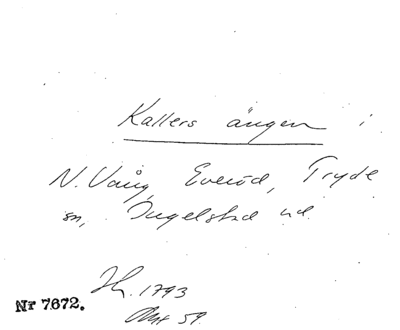 Kallers ängen i
N. Vång, Everöd, Tryde
sn, Ingelstad hd
Sk. 1793
Akt 59.
Nr 7672.